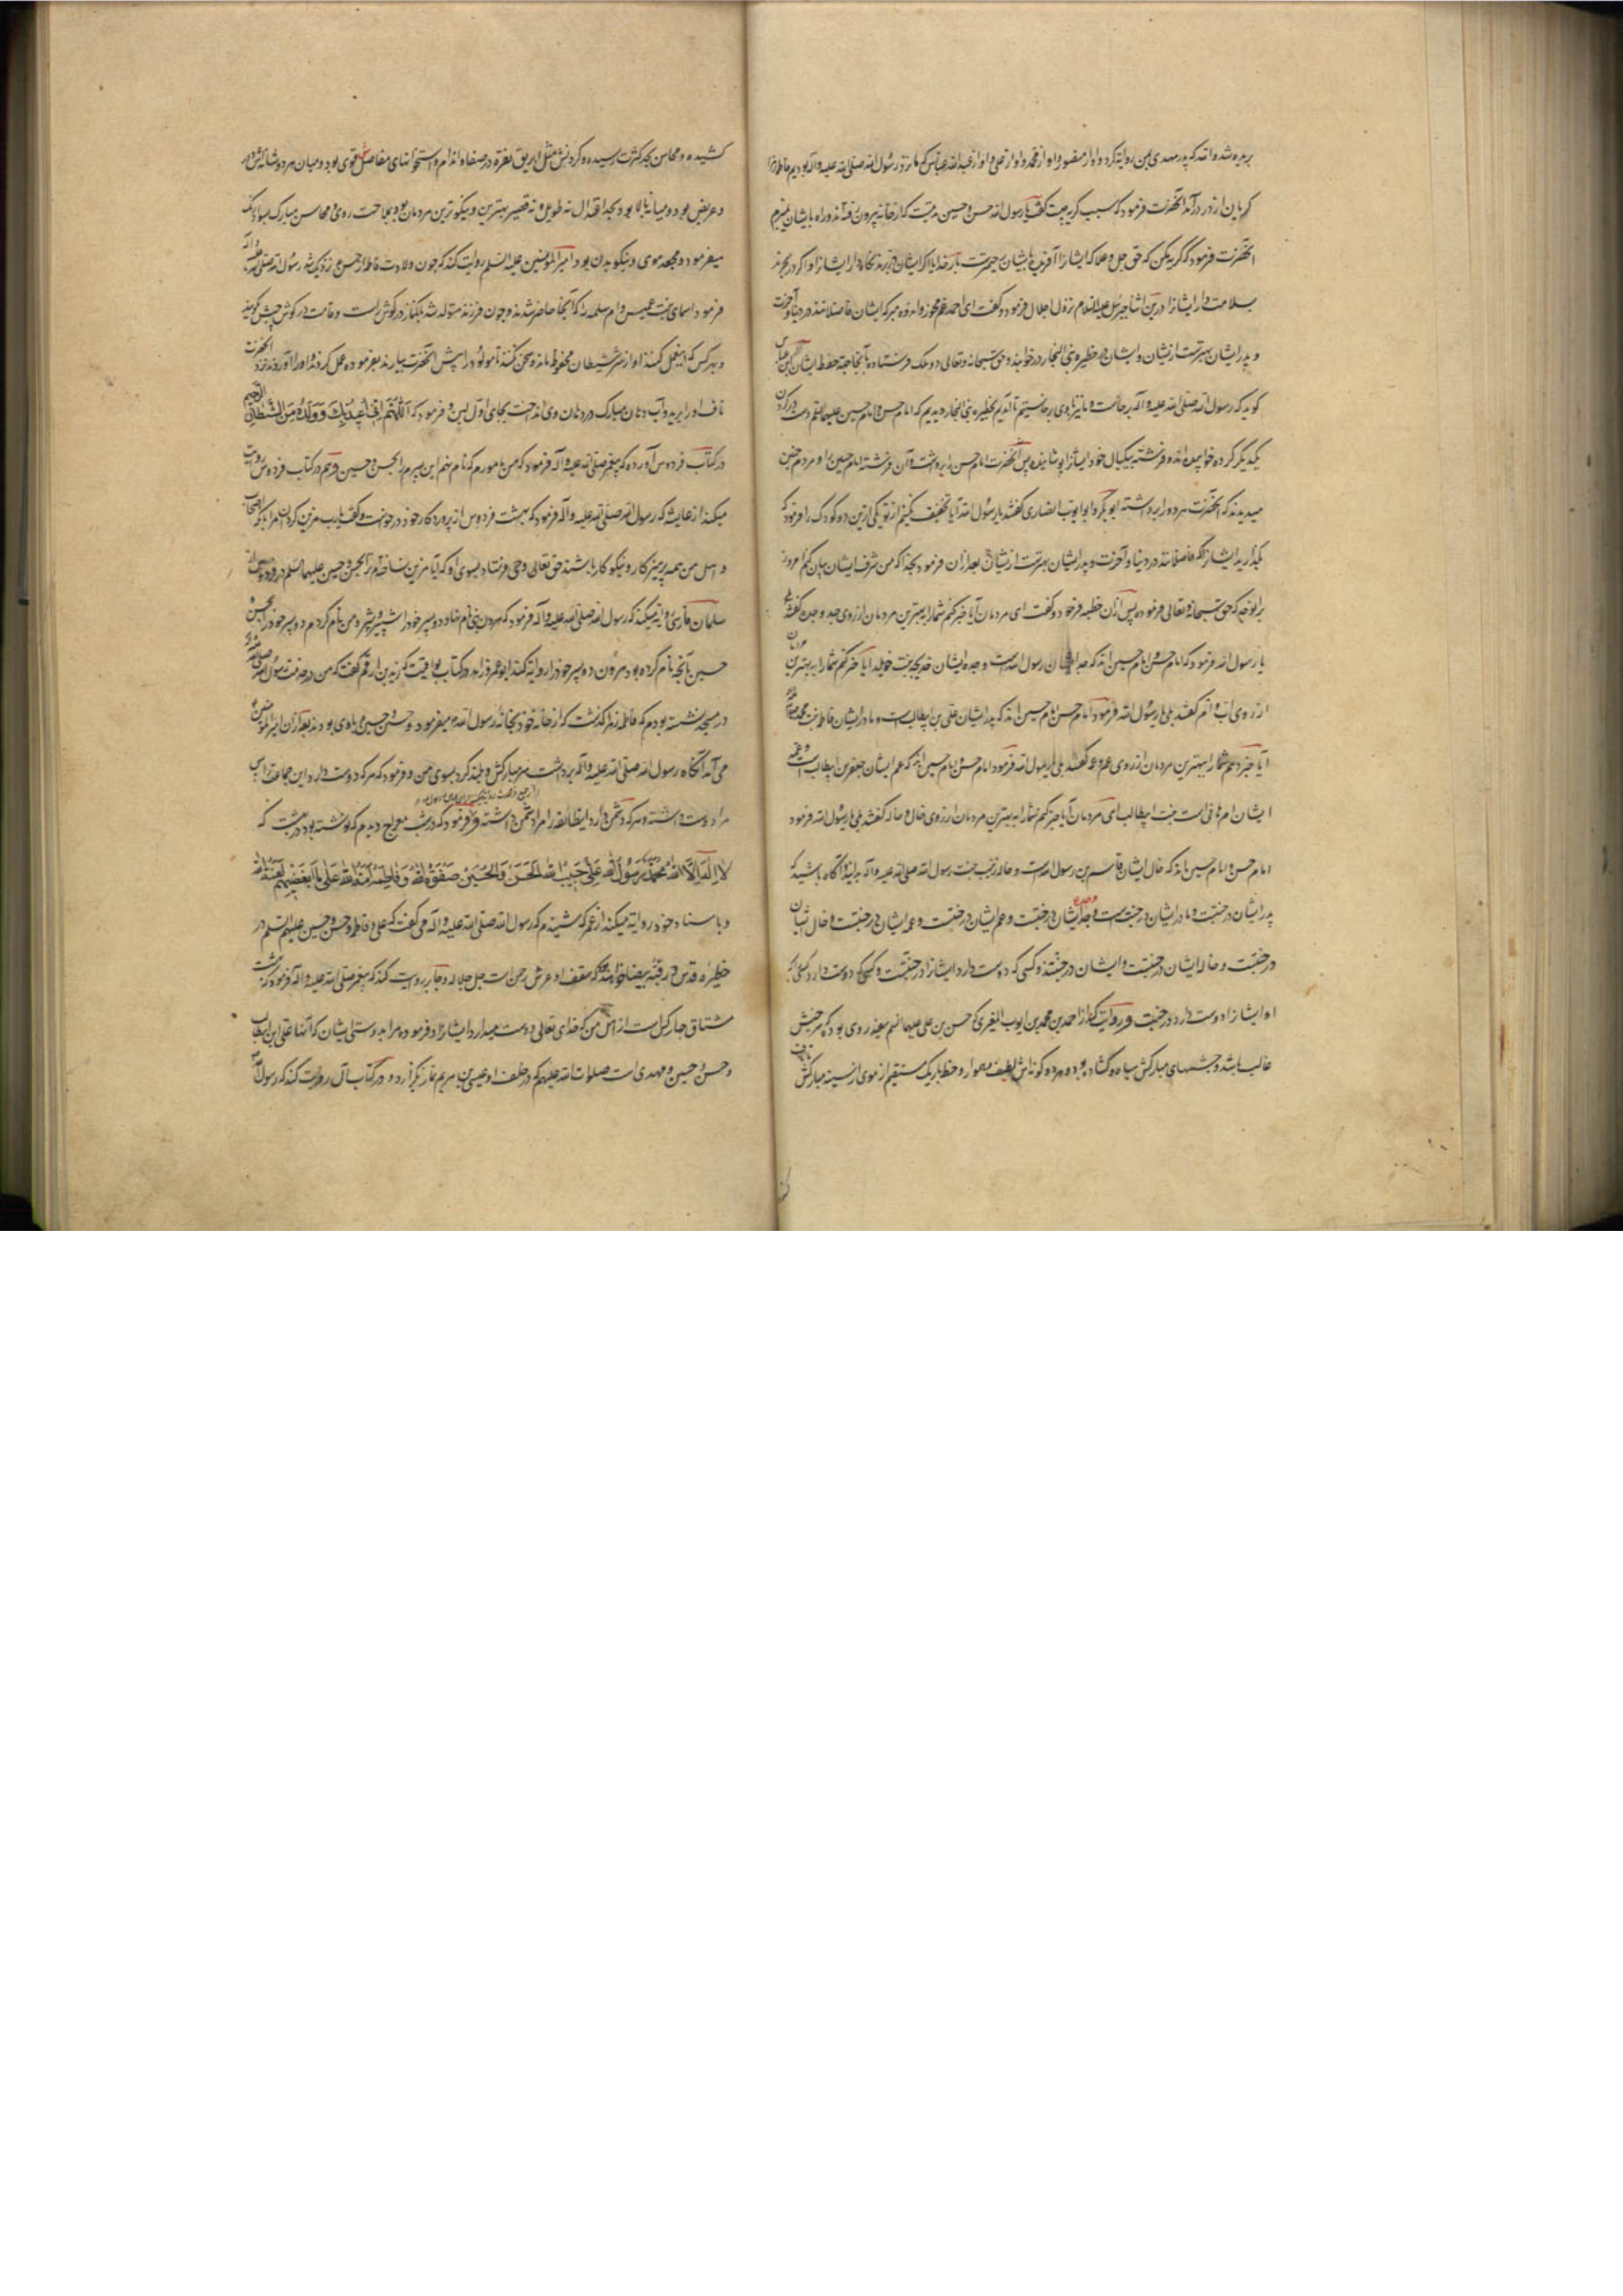 بریره شده اند که پدر مهدی بمن روایه کرد و او از منصور و او از محمد و او از علی و او از عبد الله عباس که ما نزد رسول الله صلی الله علیه و آله بودیم فاطمه زهرا
کریان از در درآمد آنحضرت فرمود که سبب گریه چیست گفت یا رسول الله حسن و حسین مدتیست که از خانه بیرون رفته اند و راه بایشان نمیبرم
آنحضرت فرمود که گریه مکن که حق جل و علا که ایشانرا آفریده بایشان رحیمترست بار خدایا اگر ایشان در برند نگاه دار ایشانرا و اگر در بحرند
بسلامت دار ایشانرا درین اثنا جبرئیل علیه السلام نزول اجلال فرمود و گفت ای احمد غم مخور و اندوه مبر که ایشان فاضلانند در دنیا و آخرت
و پدر ایشان بهترست ازیشان و ایشان در حظیره بنی النجار در خوابند و حق سبحانه و تعالی دو ملک فرستاده بآنجا جهة حفظ ایشان ابن عباس
کوید که رسول الله صلی الله علیه و آله برخاست و ما نیز با وی برخاستیم تا آمدیم بحظیره بنی النجار دیدیم که امام حسن و امام حسین علیهما السلم دست در گردن
یکدیگر کرده خوابیده اند و فرشته بیکبال خود ایشانرا پوشانیده پس آنحضرت امام حسن را برداشت و آن فرشته امام حسین را و مردم چنین
میدیدند که آنحضرت هر دو را برداشته ابو بکر و ابو ایوب انصاری گفتند یا رسول الله آیا تخفیف نکنیم از تو یکی ازین دو کودک را فرمود که
بگذارید ایشانرا که فاضلانند در دنیا و آخرت و پدر ایشان بهترست ازیشان بعد از ان فرمود بخدا که من شرف ایشان بیان کنم امروز
برانوجه که حق سبحانه و تعالی فرموده پس از ان خطبه فرمود و گفت ای مردمان آیا خبر کنم شما را ببهترین مردمان از روی جد و جده گفتند بلی
یا رسول الله فرمود که امام حسن و امام حسین اند که جد ایشان رسول الله است و جده ایشان خدیجه بنت خویلد آیا خبر کنم شما را به بهترین مردمان
از روی اب و ام گفتند بلی یا رسول الله فرمود امام حسن و امام حسین اند که پدر ایشان علی بن ابیطالب است و مادر ایشان فاطمه بنت محمد
آیا خبر دهم شما را ببهترین مردمان از روی عم و عمه گفتند بلی یا رسول الله فرمود امام حسن و امام حسین اند که عم ایشان جعفر بن ابیطالب است و عمه
ایشان ام هانی است بنت ابیطالب ای مردمان آیا خبر کنم شما را به بهترین مردمان از روی خال و خاله گفتند بلی یا رسول الله فرمود
امام حسن و امام حسین اند که خال ایشان قاسم بن رسول الله است و خاله زینب بنت رسول الله صلی الله علیه و آله بدانید و آگاه باشید که
پدر ایشان در جنتست و مادر ایشان در جنتست و جد ایشان و جده در جنتست و عم ایشان در جنتست و عمه ایشان در جنتست و خال ایشان
در جنتست و خاله ایشان در جنتست و ایشان در جنتند و کسی که دوست دارد ایشانرا در جنتست و کسی که دوست دارد کسی را که
او ایشانرا دوست دارد در جنتست و روایت از احمد بن محمد بن ایوب المغیری که حسن بن علی علیهما السلم سفید روی بود که سرخیش
غالب باشد و چشمهای مبارکش سیاه و گشاده بود و هر دو گونه اش لطیف و هموار و خط باریک مستقیم از موی از سینه مبارکش تا ناف
کشیده و محاسن بحد کثرت رسیده و گردنش مثل ابریق نقره در صفا و اندام و استخوانهای مفاصل قوی بود و میان هر دو شانه اش دور
و عریض بود و میانه بالا بود بحد اعتدال نه طویل و نه قصیر بهترین و نیکوترین مردمان بود بملاحت روی و محاسن مبارک بسواد رنگ
میفرمود و مجعد موی و نیکو بدن بود امیر المؤمنین علیه السلم روایت کند که چون ولادت فاطمه از حسن نزدیک شد رسول الله صلی الله علیه و آله
فرمود اسماء بنت عمیس و ام سلمه را که آنجا حاضر شدند و چون فرزند متولد شد بانگ نماز در گوش راست و قامت در گوش چپش گویند
و هر کس که اینفعل کند او از شر شیطان محفوظ ماند و سخن نکنند تا مولود را پیش آنحضرت بیارند بفرموده عمل کردند او را آوردند نزد آنحضرت
ناف او را برید و آب دهان مبارک در دهان وی انداخت بجای اول لبن و فرمود که اللهم انی اعیذه بک و ولده من الشیطان الرجیم
در کتاب فردوس آورده که پیغمبر صلی الله علیه و آله فرمود که من مامورم که نام نهم این پسرم را بحسن و حسین و هم در کتاب فردوس روایت
میکند از عایشه که رسول الله صلی الله علیه و آله فرمود که بهشت فردوس از پروردگار خود درخواست و گفت یا رب مزین گردان مرا که اصحاب
و اهل من همه پرهیزکار و نیکوکار باشند حق تعالی وحی فرستاد بسوی او که آیا مزین نساخته ام ترا بحسن و حسین علیهما السلم
سلمان فارسی روایه میکند که رسول الله صلی الله علیه و آله فرمود که هرون نبی نام نهاد دو پسر خود را شبر و شبیر و من نام کردم دو پسر خود را بحسن و
حسین بآنچه نام کرده بود هرون دو پسر خود را روایه کند ابو عمر زاهد در کتاب یواقیت که زید بن ارقم گفت که من در خدمت رسول الله
در مسجد نشسته بودم که فاطمه زهرا گذشت که از خانه خود بخانه رسول الله میفرمود و حسن و حسین با وی بودند بعد از ان امیر المؤمنین
می آمد آنگاه رسول الله صلی الله علیه و آله برداشت سر مبارکش و بلند کرد بسوی من و فرمود که هر که دوست دارد این جماعت را پس
مرا دوست داشته و هر که دشمن دارد اینطائفه را مرا دشمن داشته و فرمود که در شب معراج دیدم که نوشته بود در بهشت که
لا اله الا الله محمد رسول الله علی حبیب الله الحسن و الحسین صفوة الله و فاطمه امة الله علی باغضیهم لعنة الله
و باسناد خود روایه میکند از عمر که شنیدم که رسول الله صلی الله علیه و آله می گفت که علی و فاطمه و حسن و حسین علیهم السلم در
حظیره قدس در قبه بیضا خواهند بود که سقف او عرش رحمن است جل جلاله و جابر روایت کند که پیغمبر صلی الله علیه و آله فرمود که بهشت
مشتاق چار کس است از امت من که خدای تعالی دوست میدارد ایشانرا و فرموده مرا به دوستی ایشان که آنها علی ابن ابیطالب
و حسن و حسین و مهدی است صلوات الله علیهم که در خلف او عیسی بن مریم نماز بگزارد و در کتاب آل روایت کند که رسول الله